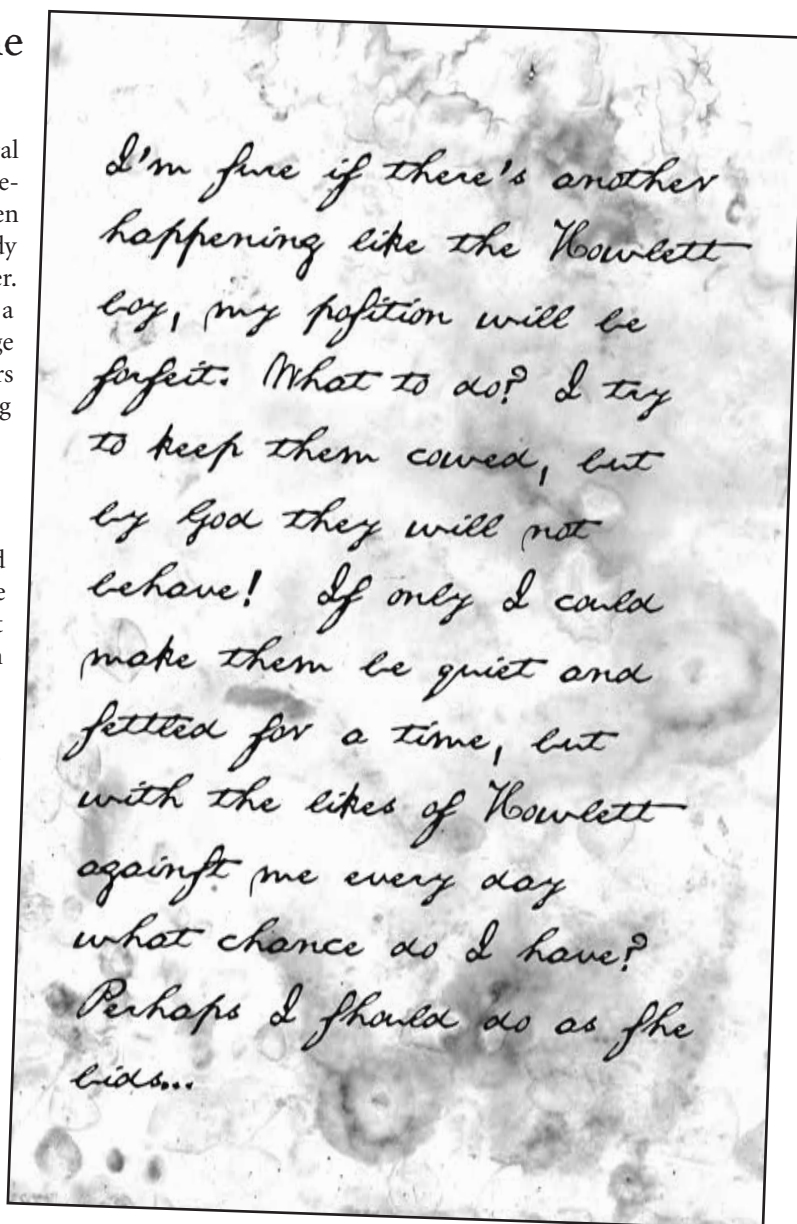 I'm ſure if there's another
happening like the Howlett
boy, my poſition will be
forfeit. What to do? I try
to keep them cowed, but
by God they will not
behave! If only I could
make them be quiet and
ſettled for a time, but
with the likes of Howlett
againſt me every day
what chance do I have?
Perhaps I ſhould do as ſhe
bids...